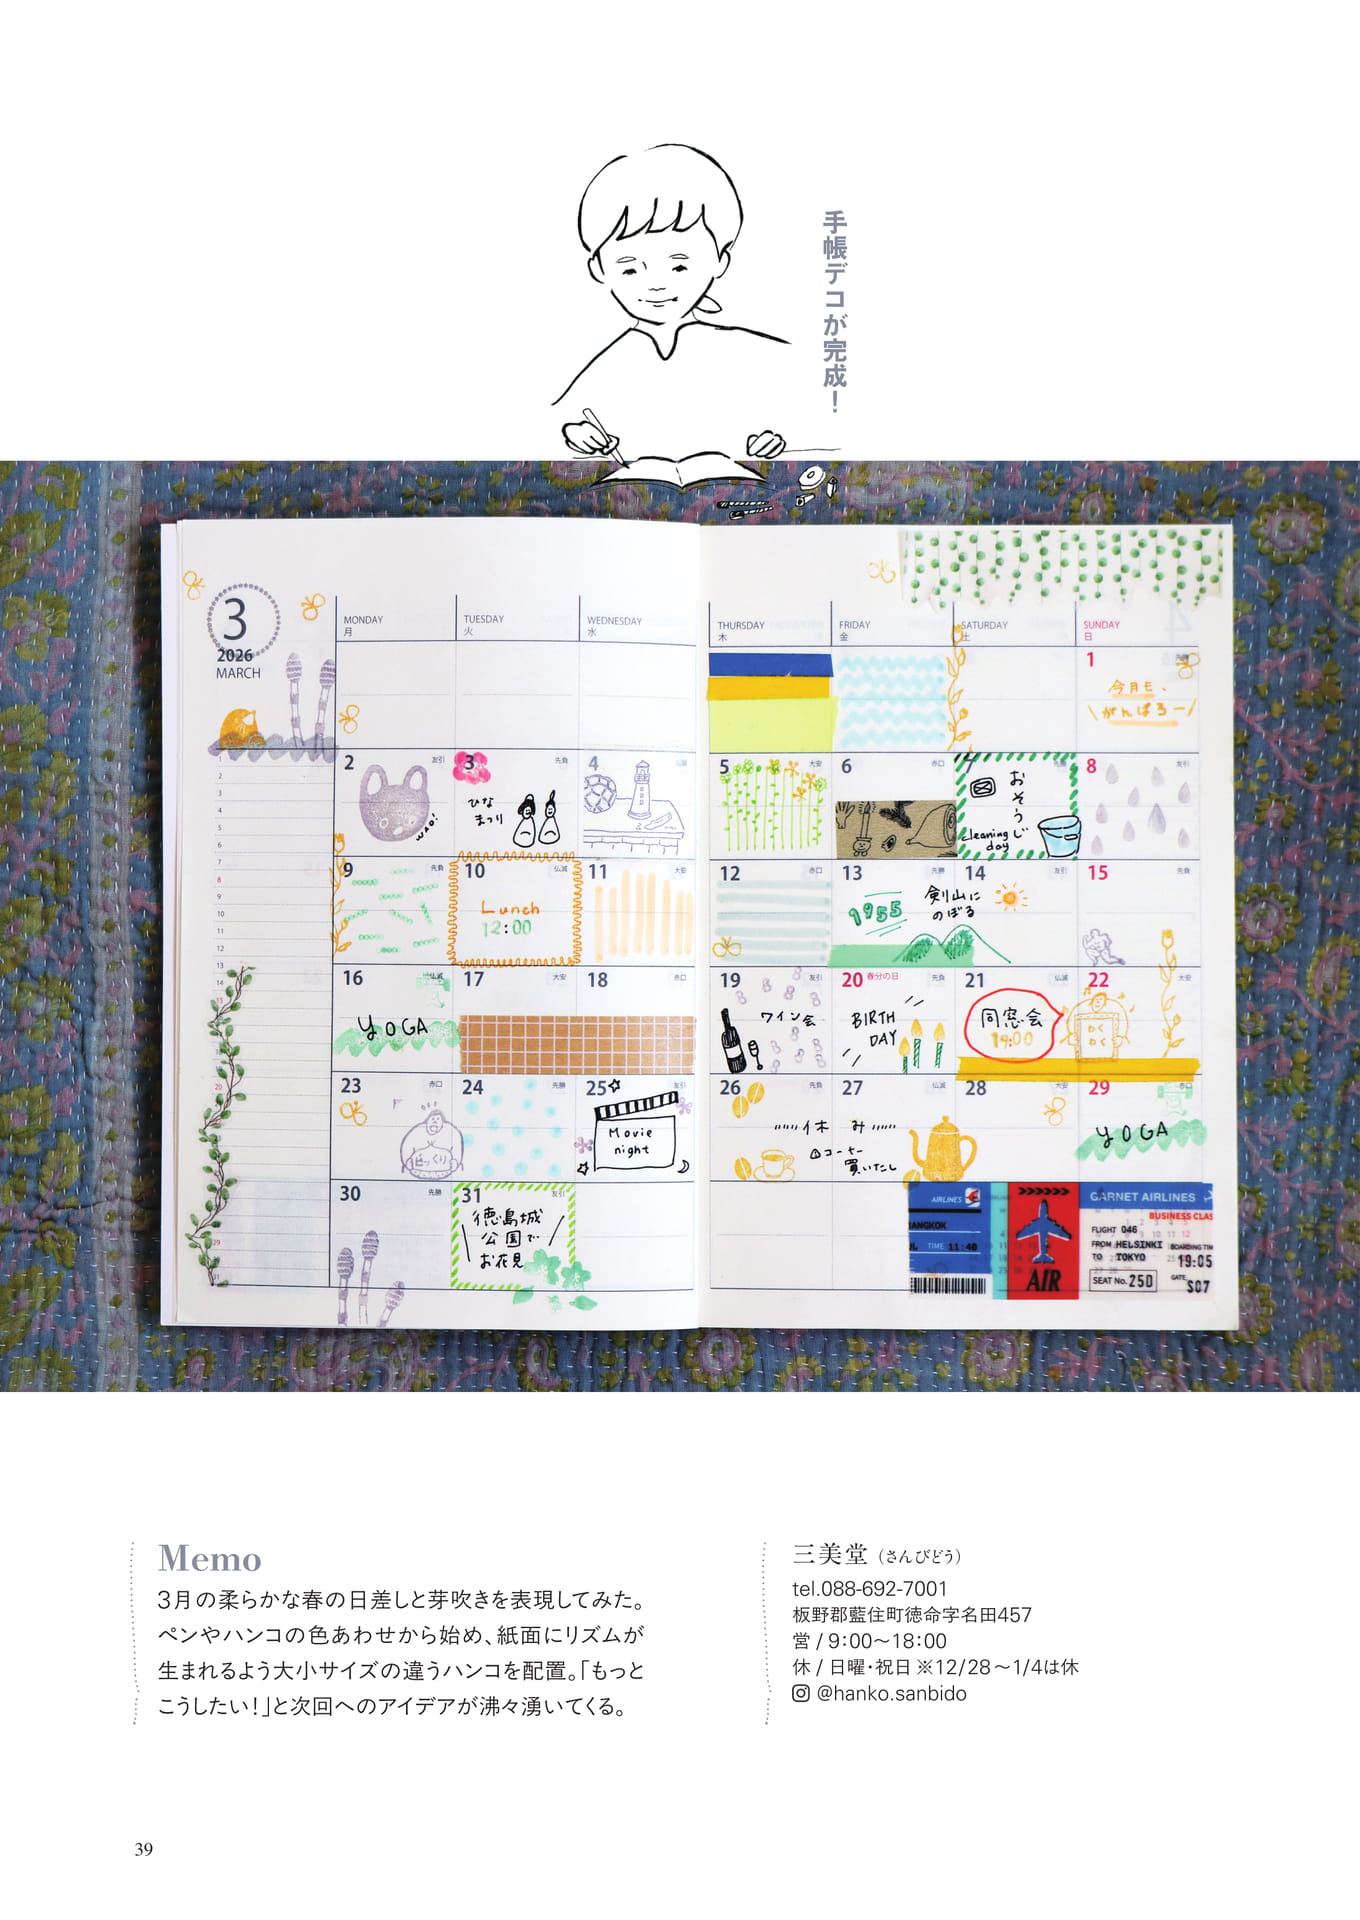 手帳デコが完成！
3
2026
MARCH
MONDAY
月
TUESDAY
火
WEDNESDAY
水
THURSDAY
木
FRIDAY
金
SATURDAY
土
SUNDAY
日
1
今月も、
がんばろー
2 友引
3 先負
ひな
まつり
4 仏滅
5 大安
6 赤口
7 先勝
おそうじ
cleaning
day
8 友引
9 先負
10 仏滅
Lunch
12:00
11 大安
12 赤口
13 先勝
1955
剣山に
のぼる
14 友引
15 先負
16 仏滅
YOGA
17 大安
18 赤口
19 友引
ワイン会
20 春分の日 先負
BIRTH
DAY
21 仏滅
同窓会
19:00
22 大安
わく
わく
23 赤口
びっくり
24 先勝
25 友引
Movie
night
26 先負
27 仏滅
休み
コーヒー
買いたし
28 大安
29 赤口
YOGA
30 先勝
31 友引
徳島城
公園で
お花見
AIRLINES
BANGKOK
TIME 11:40
AIR
GARNET AIRLINES
BUSINESS CLAS
FLIGHT 046
FROM HELSINKI
TO TOKYO
BOARDING TIM
19:05
SEAT No. 25D
GATE
S07
Memo
3月の柔らかな春の日差しと芽吹きを表現してみた。
ペンやハンコの色あわせから始め、紙面にリズムが
生まれるよう大小サイズの違うハンコを配置。「もっと
こうしたい！」と次回へのアイデアが沸々湧いてくる。
三美堂（さんびどう）
tel.088-692-7001
板野郡藍住町徳命字名田457
営 / 9：00〜18：00
休 / 日曜・祝日 ※12/28〜1/4は休
@hanko.sanbido
39